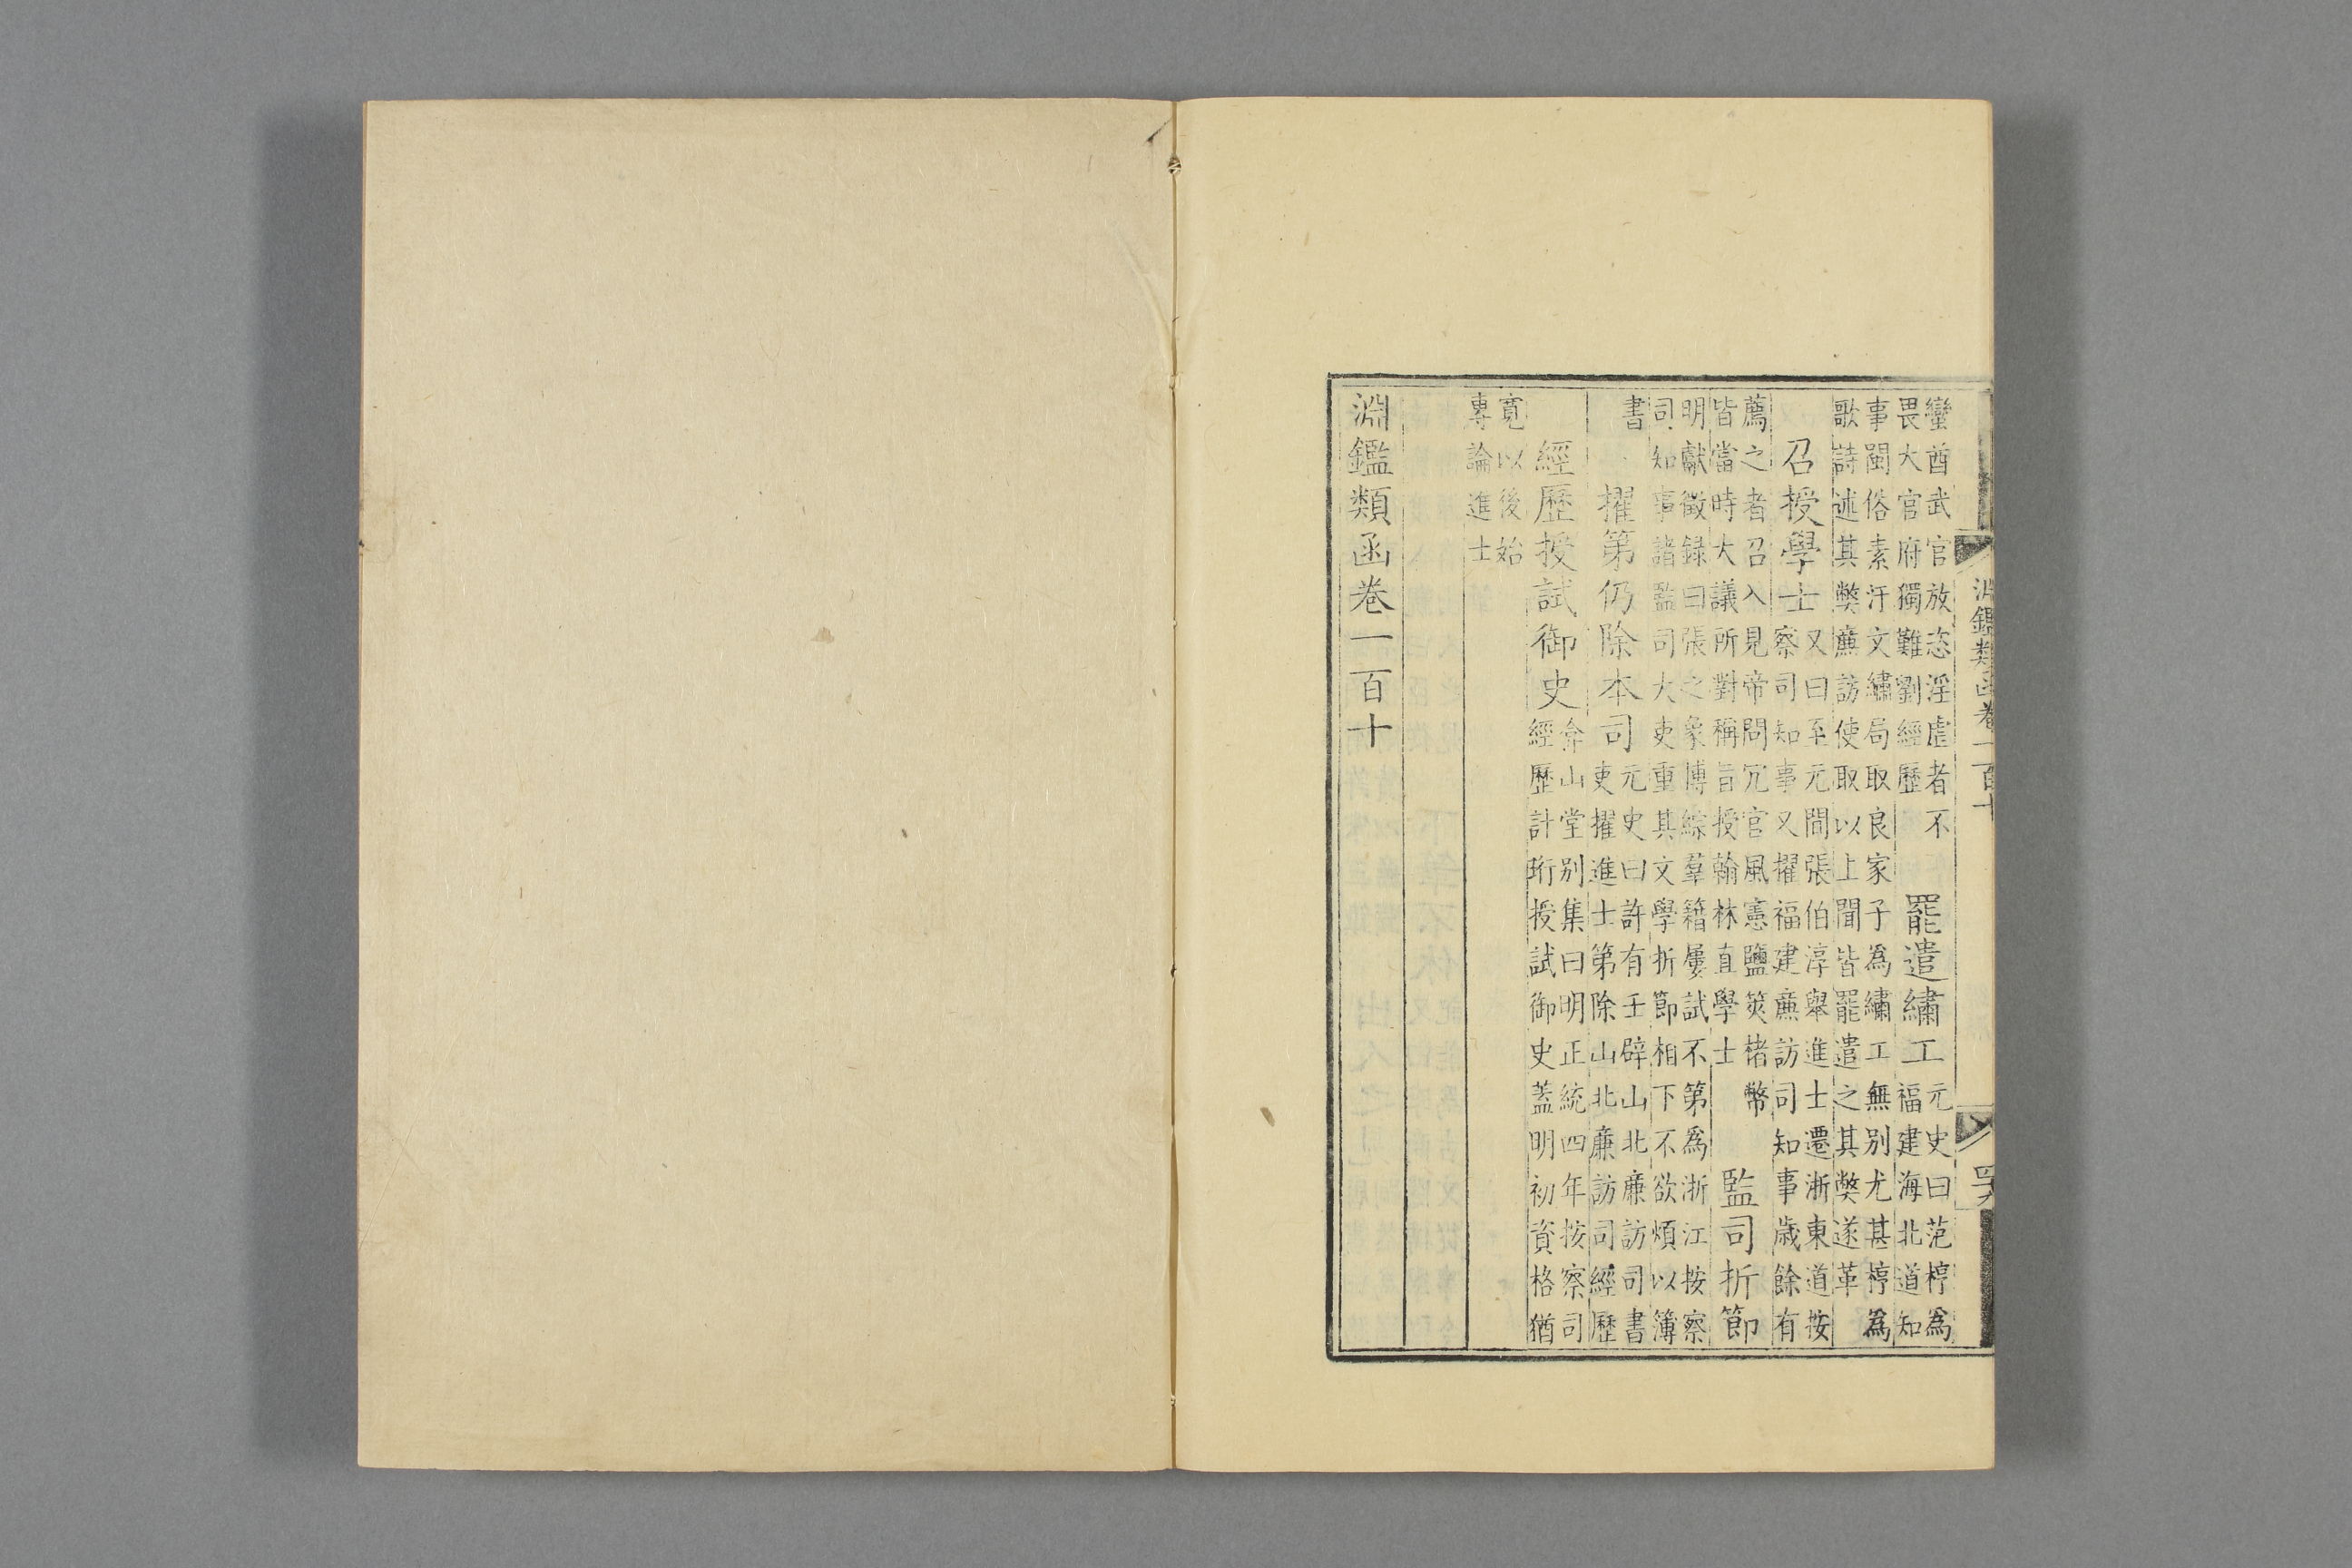 淵鑑類函卷一百十
蠻酋武官放恣淫虐者不
畏大官府獨難劉經歷
罷遣繡工
元史曰范梈爲
福建海北道知
事閩俗素汙文繡局取良家子爲繡工無别尤甚梈爲
歌詩述其弊廉訪使取以上聞皆罷遣之其弊遂革
召授學士
又曰至元間張伯淳舉進士遷浙東道按
察司知事又擢福建廉訪司知事歲餘有
薦之者召入見帝問冗官風憲鹽筴楮幣
皆當時大議所對稱旨授翰林直學士
監司折節
明獻徵録曰張之象博綜羣籍屢試不第爲浙江按察
司知事諸監司大吏重其文學折節相下不欲煩以簿
書
擢第仍除本司
元史曰許有壬辟山北廉訪司書
吏擢進士第除山北廉訪司經歷
經歷授試御史
弇山堂别集曰明正統四年按察司
經歷計珩授試御史蓋明初資格猶
寛以後始
專論進士
淵鑑類函卷一百十